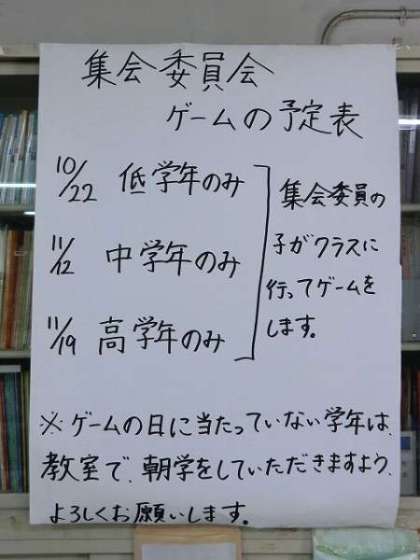 集会委員会
ゲームの予定表
10/22 低学年のみ
11/12 中学年のみ
11/19 高学年のみ
集会委員の
子がクラスに
行ってゲームを
します。
※ゲームの日に当たっていない学年は、
教室で、朝学をしていただきますよう、
よろしくお願いします。